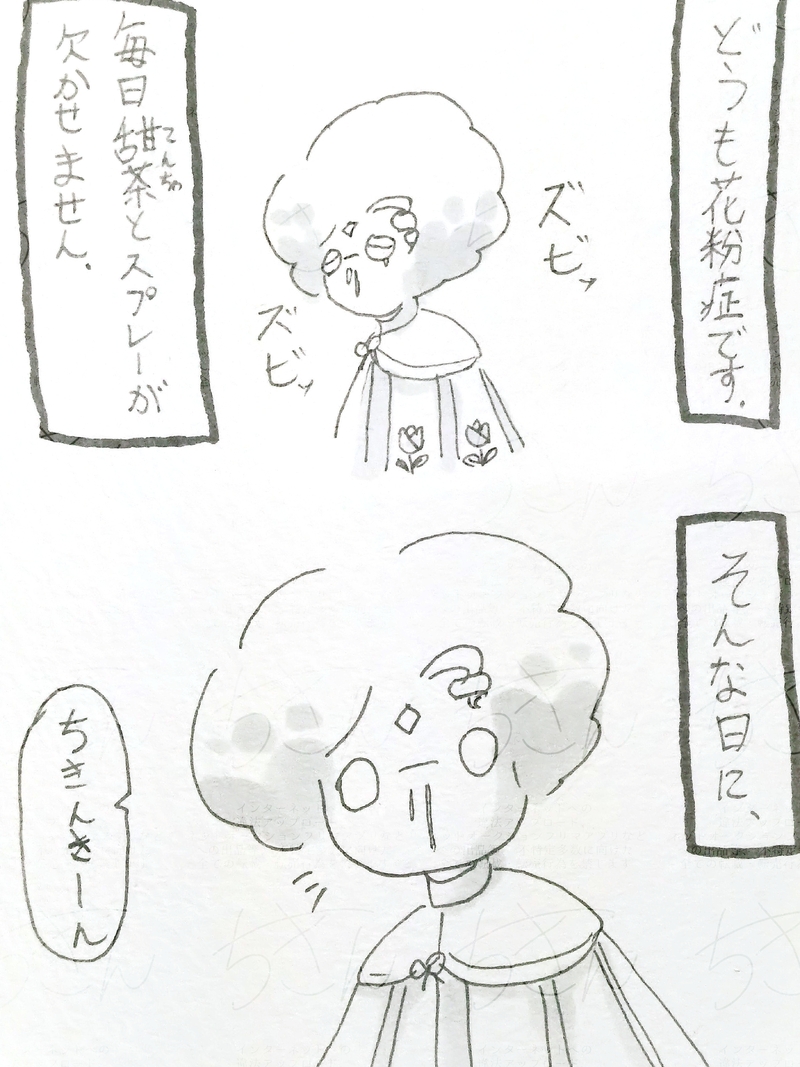 どうも花粉症です.
ズビッ
ズビッ
毎日甜茶とスプレーが
てんちゃ
欠かせません.
そんな日に、
ちきんさーん